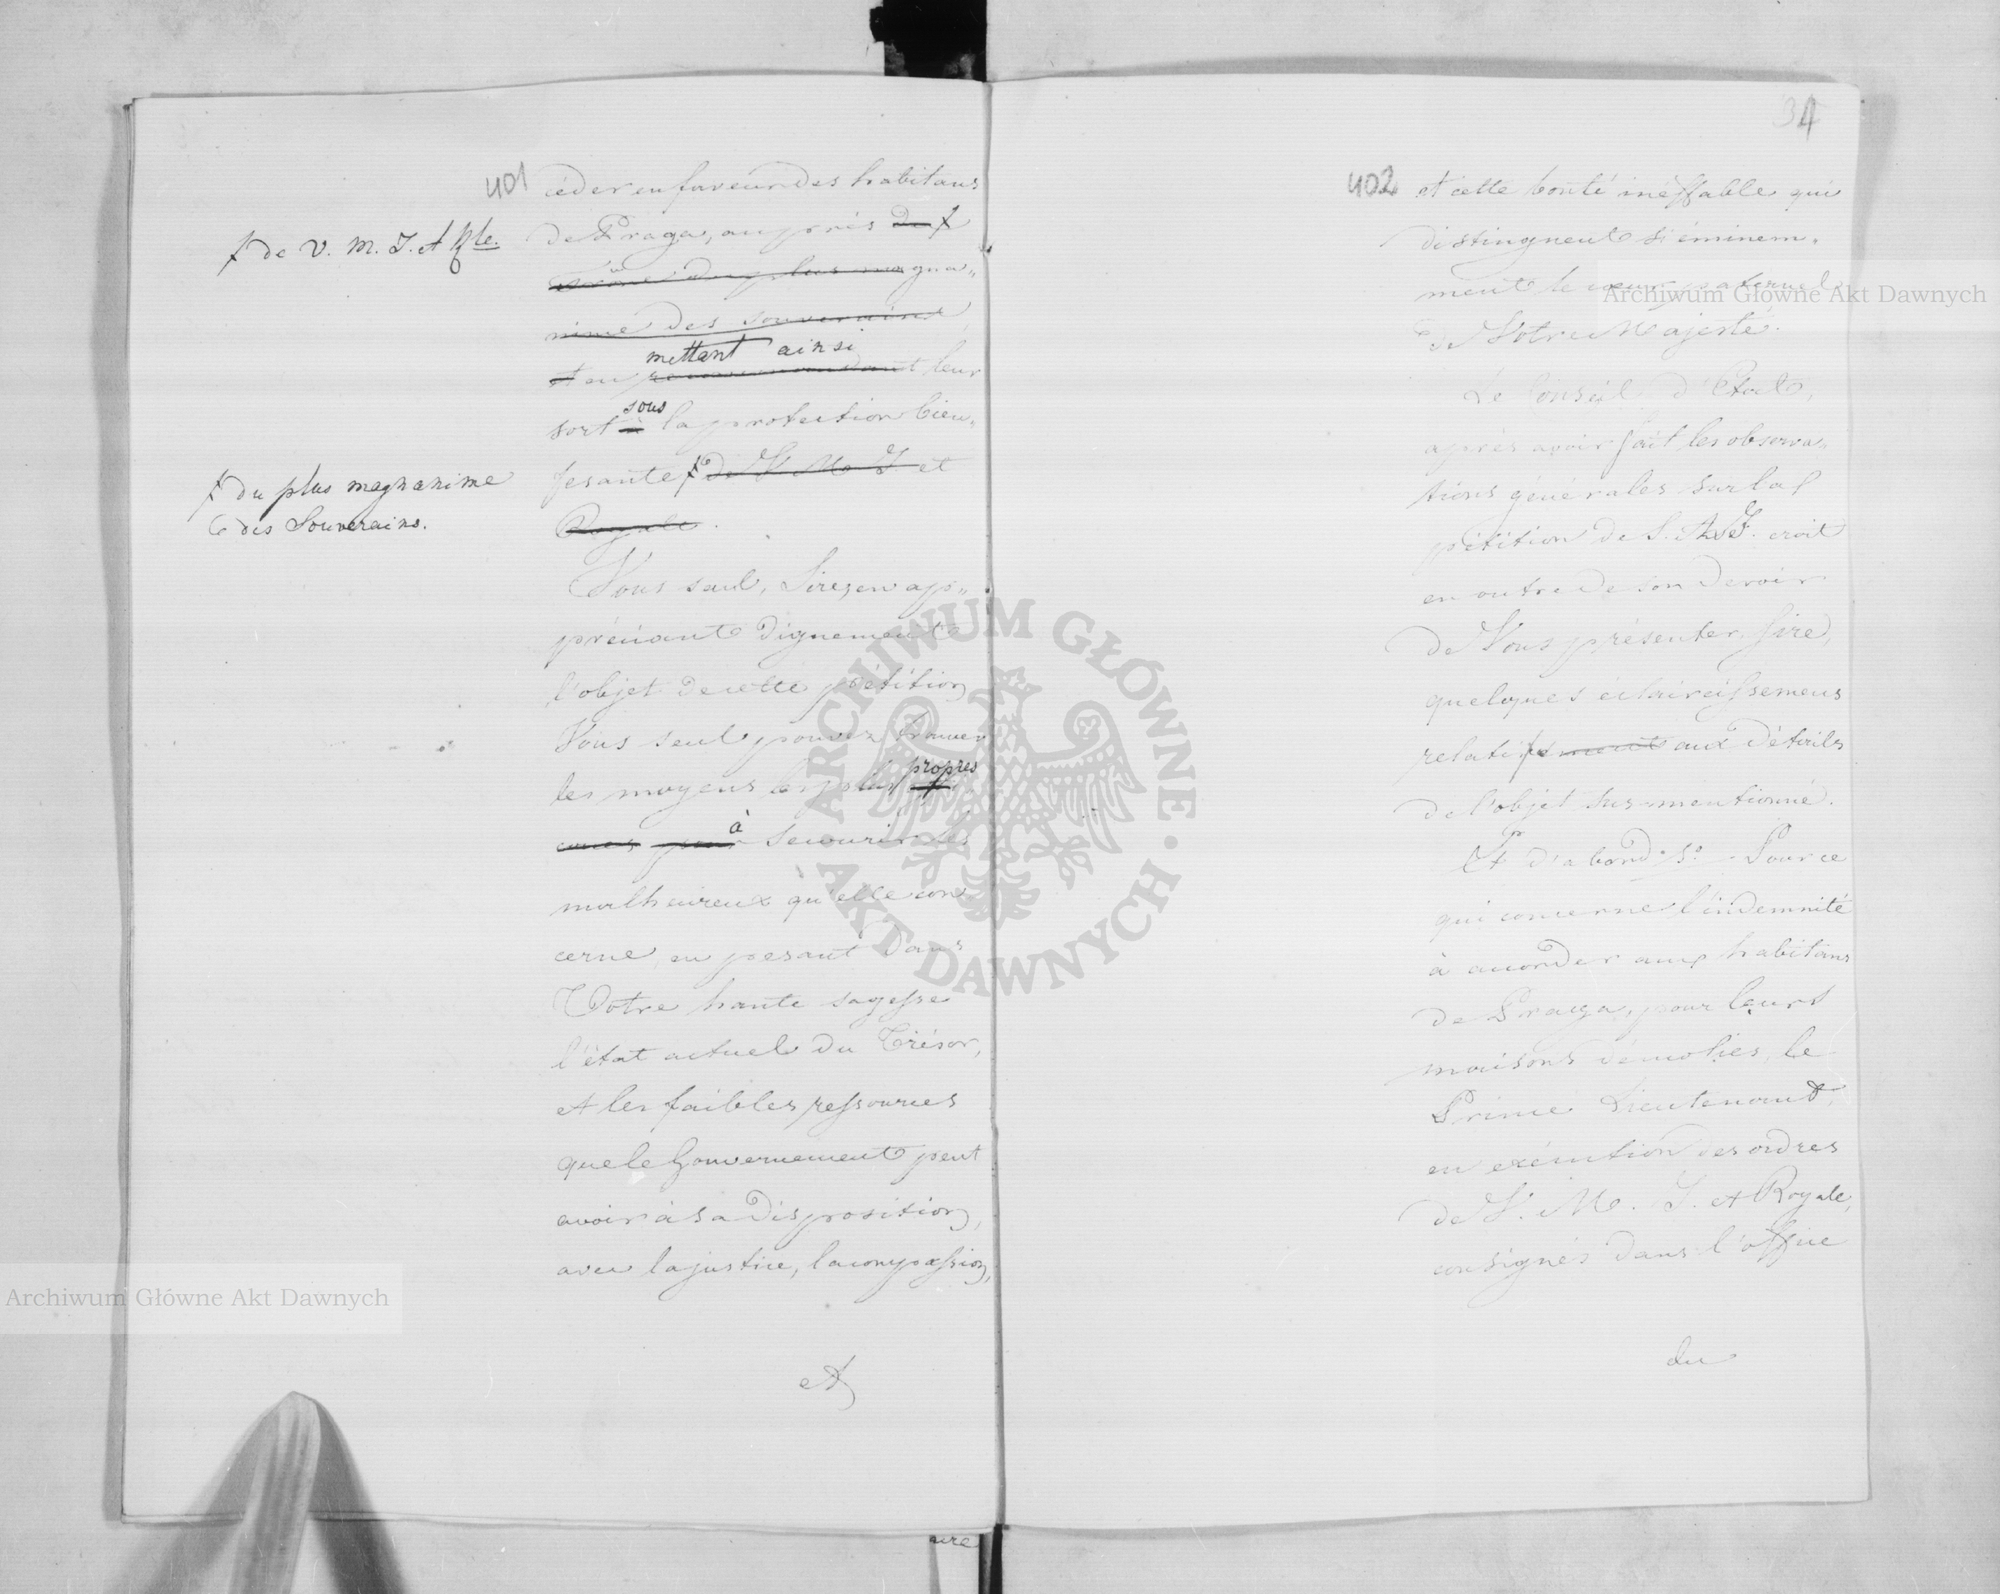 401
céder en faveur des habitans
ƒ de V. M. I. et Rle.
de Praga, auprès du ƒ
Trône du plus magna„
nime des souverains
mettant ainsi
et en recommandant leur
sous
sort à la protection bien„
ƒ du plus magnanime
des Souverains.
fesante ƒ de V. M. I et
Royale.
Vous seul, Sire, en ap„
préciant dignement
l'objet de cette pétition
Vous seul pouvez trouver
propres
les moyens les plus
à
pour secourir les
malheureux qu'elle con
cerne, en pesant dans
Votre haute sagesse
l'état actuel du Trésor,
et les faibles ressources
que le Gouvernement peut
avoir à sa disposition,
avec la justice, la compassion,
et
34
402
et cette bonté inéffable qui
distinguent si éminem„
ment le cœur paternel
de Votre Majesté.
Le Conseil d'Etat,
après avoir fait les observa„
tions générales sur la
pétition de S. A. I. croit
en outre de son devoir
de Vous présenter, Sire,
quelques eclaircissemens
relatifs ment aux détails
de l'objet sus-mentionné.
Et d'abord Pour ce
qui concerne l'indemnité
à accorder aux habitans
de Praga, pour leurs
maisons démolies, le
Prince Lieutenant,
en exécution des ordres
de V. M. I. et Royale,
consignés dans l'office
du
aire
Archiwum Główne Akt Dawnych
Archiwum Główne Akt Dawnych
ARCHIWUM GŁÓWNE · AKT DAWNYCH ·